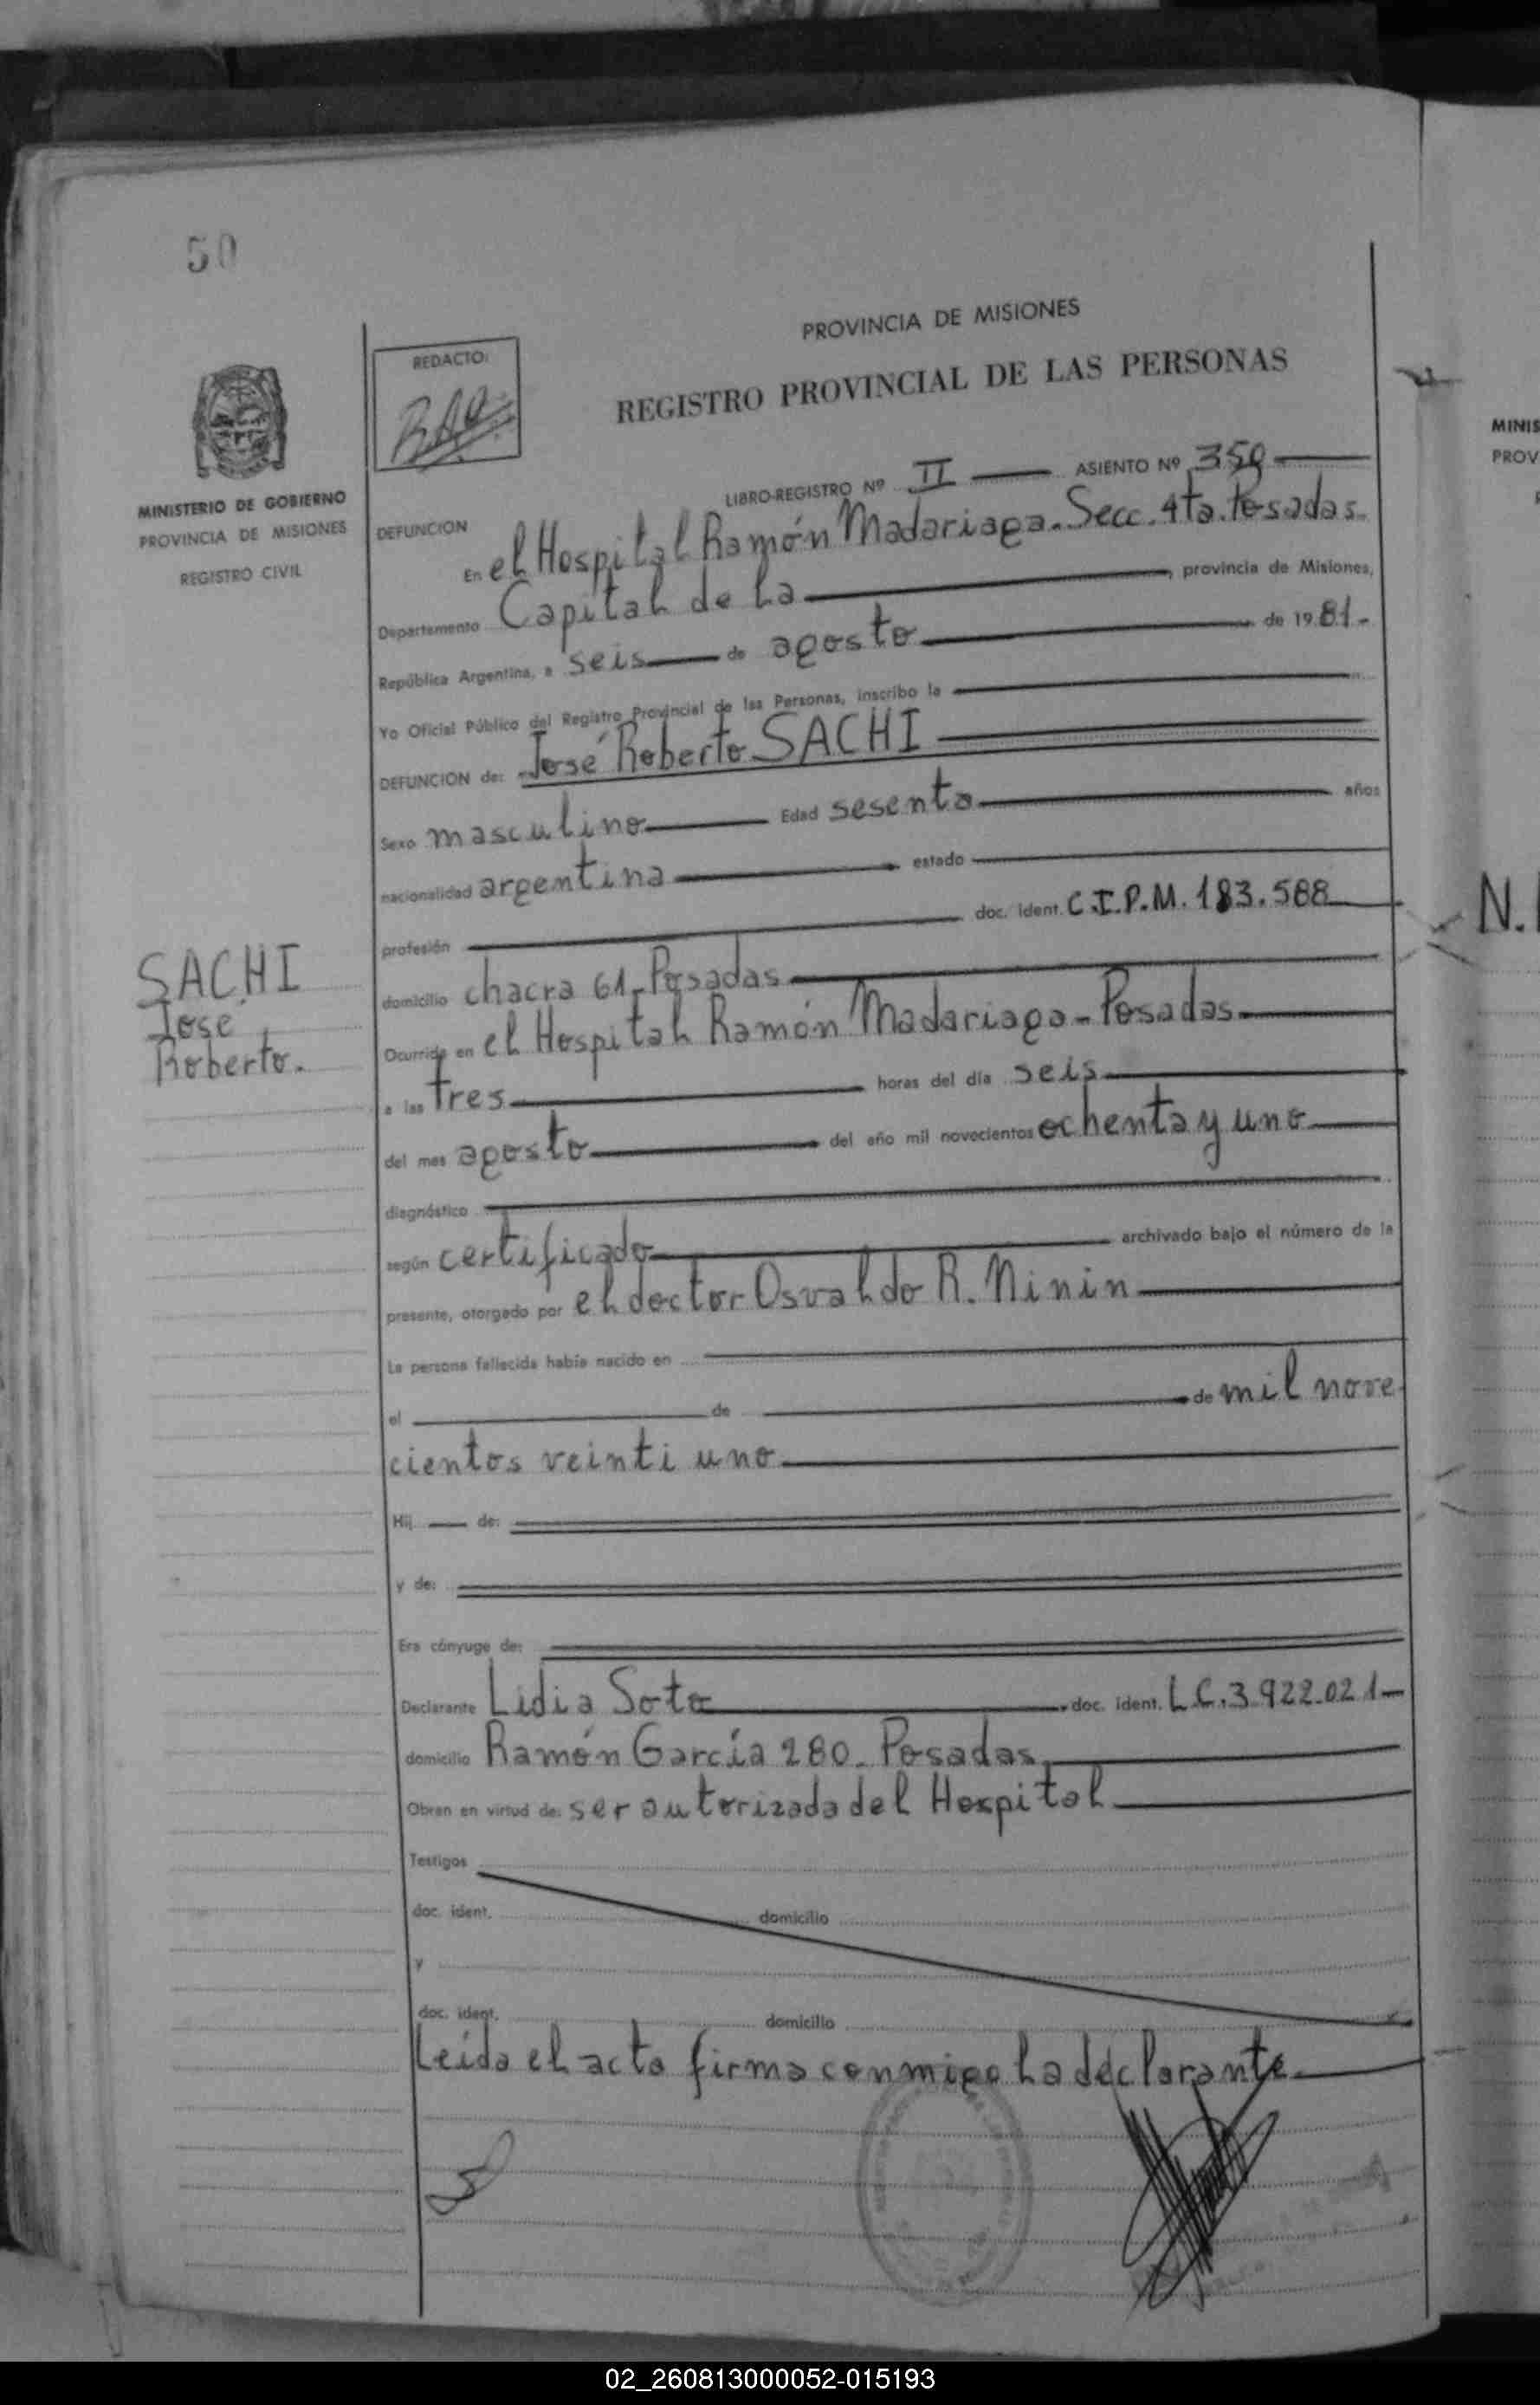 50
PROVINCIA DE MISIONES
REDACTO:
REGISTRO PROVINCIAL DE LAS PERSONAS
MINISTERIO DE GOBIERNO
PROVINCIA DE MISIONES
REGISTRO CIVIL
LIBRO-REGISTRO Nº II ASIENTO Nº 359
DEFUNCION
En el Hospital Ramón Madariaga. Secc. 4ta. Posadas.
Departamento Capital de la provincia de Misiones,
República Argentina, a seis de agosto de 1981.
Yo Oficial Público del Registro Provincial de las Personas, inscribo la
DEFUNCION de: José Roberto SACHI
Sexo masculino Edad sesenta años
nacionalidad argentina estado
profesión doc. ident. C.I.P.M. 183.588
SACHI
José
Roberto.
domicilio chacra 61. Posadas
Ocurrida en el Hospital Ramón Madariaga - Posadas
a las tres horas del día seis
del mes agosto del año mil novecientos ochenta y uno
diagnóstico
según certificado archivado bajo el número de la
presente, otorgado por el doctor Osvaldo R. Ninin
La persona fallecida había nacido en
el de de mil nove
cientos veinti uno
Hij de:
y de:
Era cónyuge de:
Declarante Lidia Soto doc. ident. L.C. 3.922.021
domicilio Ramón García 280. Posadas
Obran en virtud de: ser autorizada del Hospital
Testigos
doc. ident. domicilio
y
doc. ident. domicilio
Leída el acta firma conmigo la declarante.
MINIS
PROV
N.
02_260813000052-015193